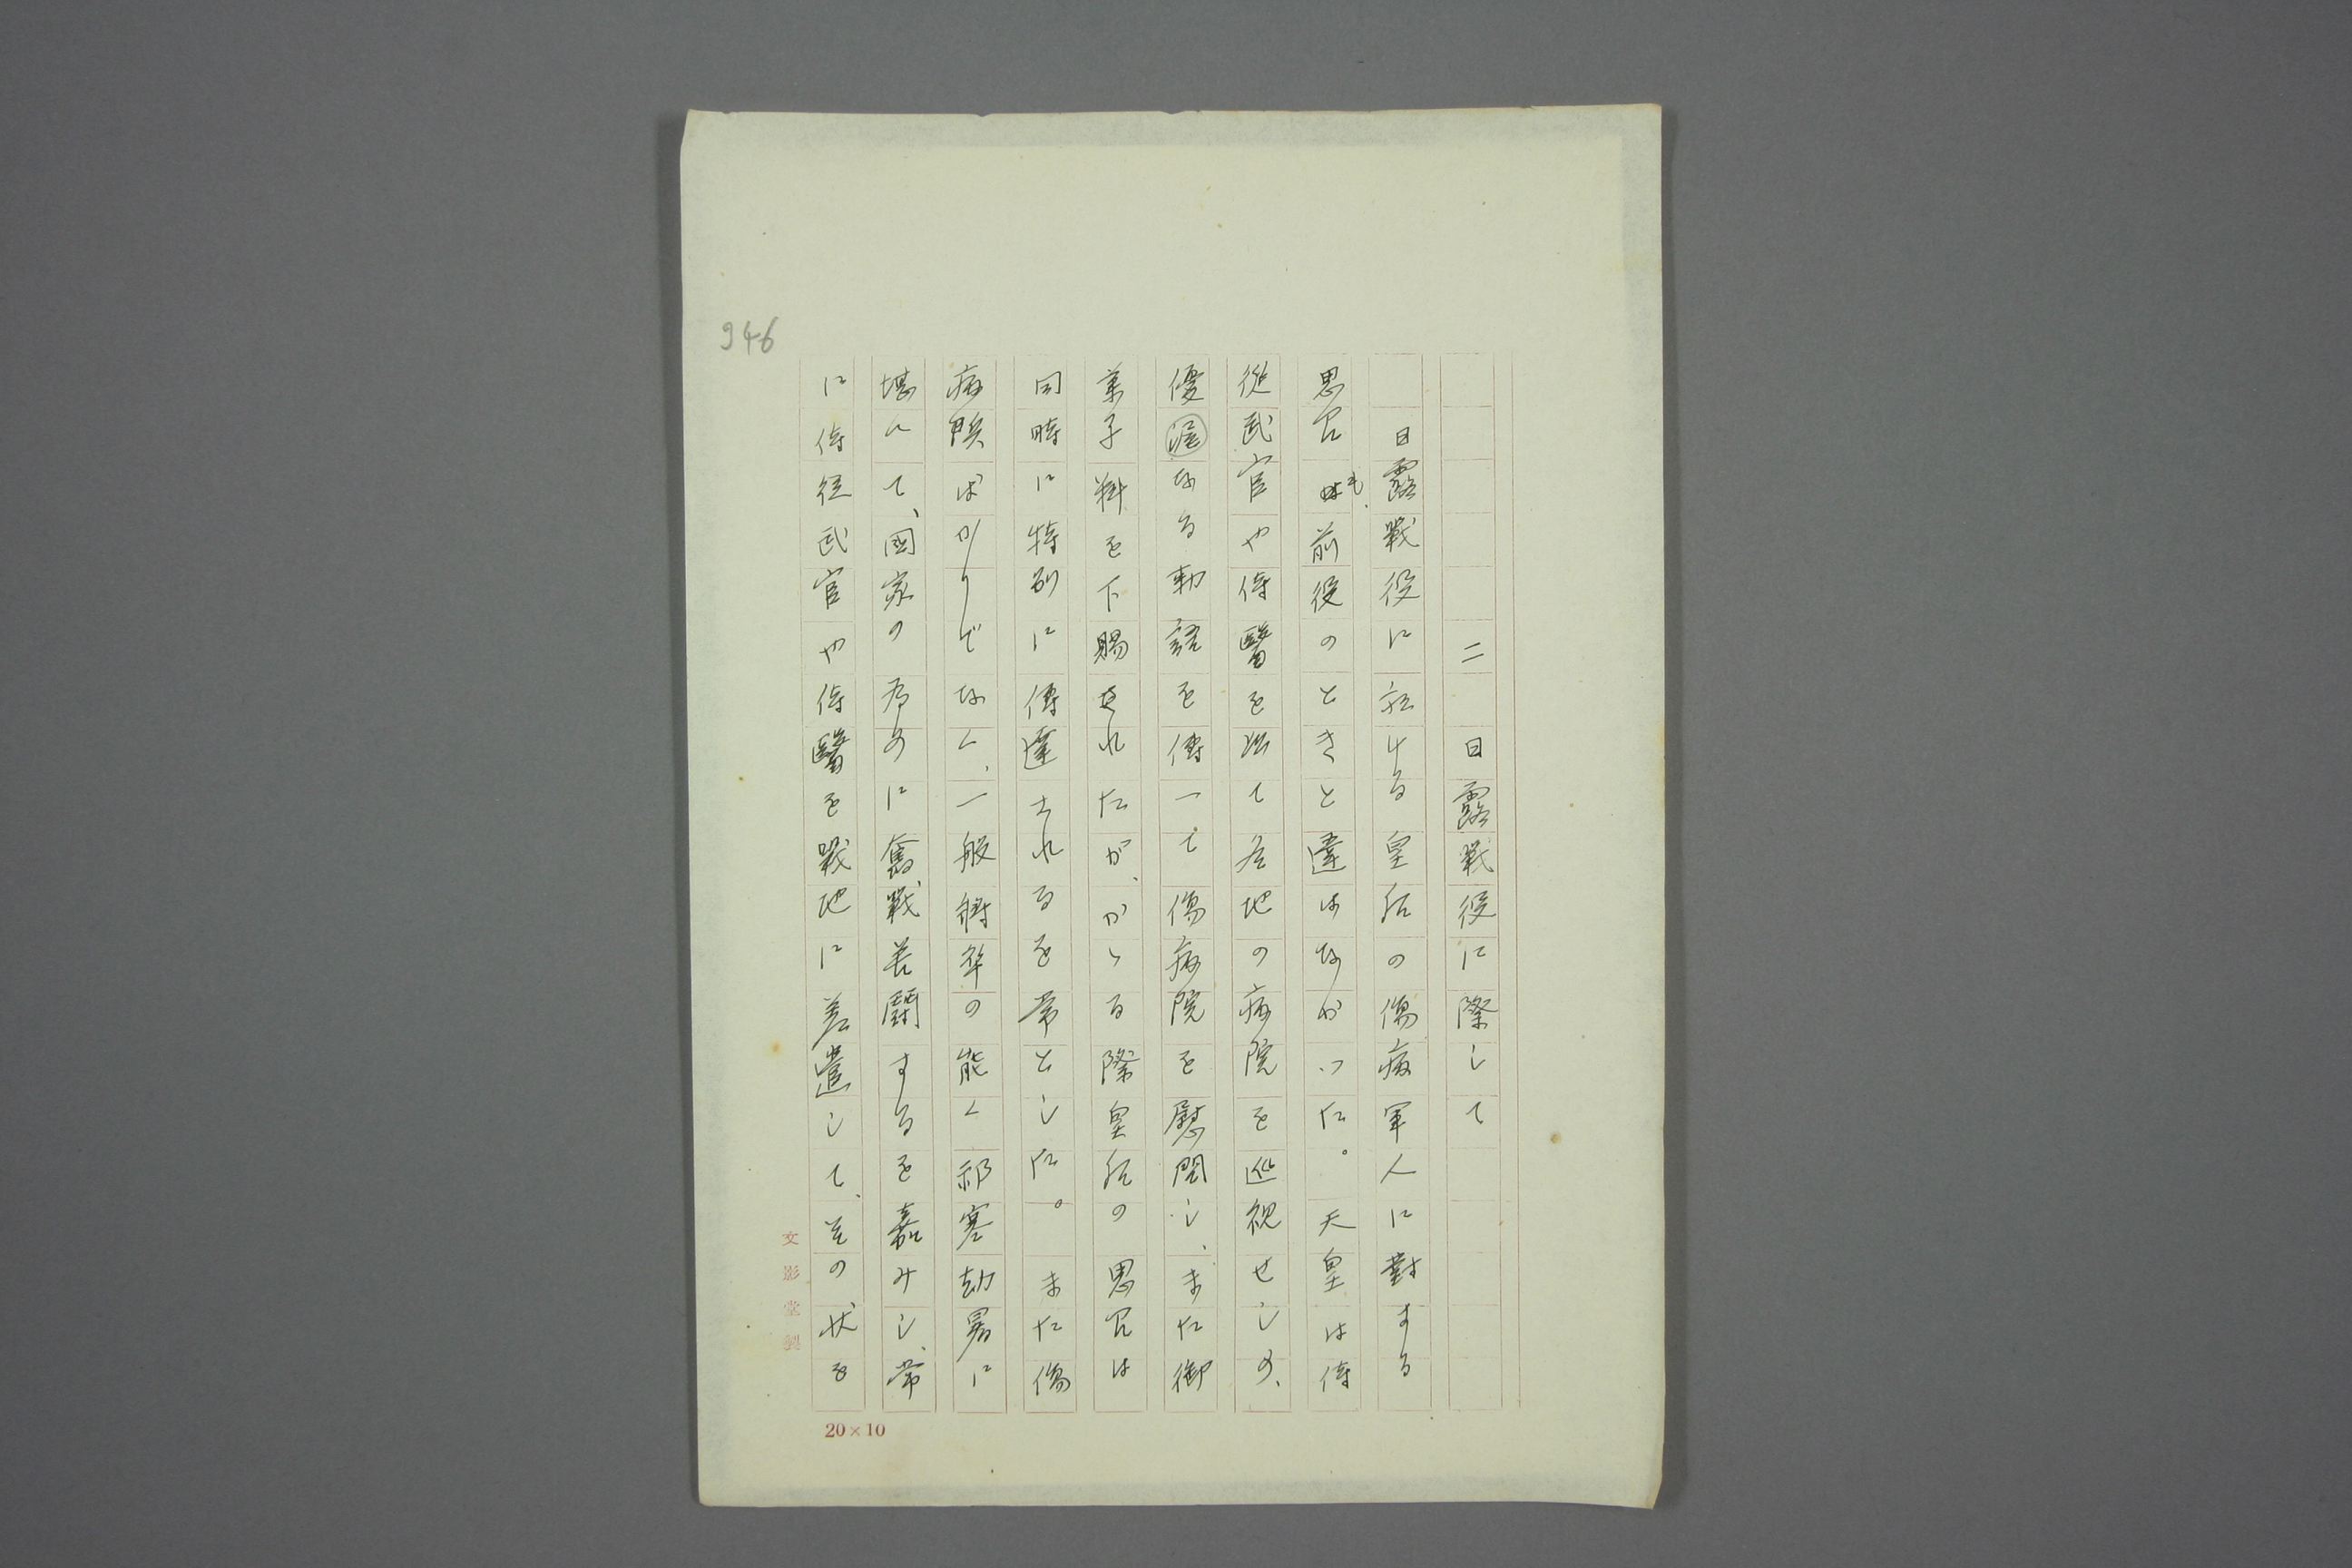 946
二 日露戰役に際して
日露戰役に於ける皇后の傷病軍人に對する
思召も、前役のときと違はなかった。天皇は侍
從武官や侍醫を出て各地の病院を巡視せしめ、
優渥なる勅語を傳へて傷病院を慰問し、また御
菓子料を下賜されたが、かゝる際皇后の思召は
同時に特別に傳達されるを常とした。また傷
病院ばかりでなく、一般將卒の能く祁寒劫暑に
堪へて、國家の為めに奮戰苦鬪するを嘉みし、常
に侍從武官や侍醫を戰地に差遣して、その状を
文影堂製
20×10